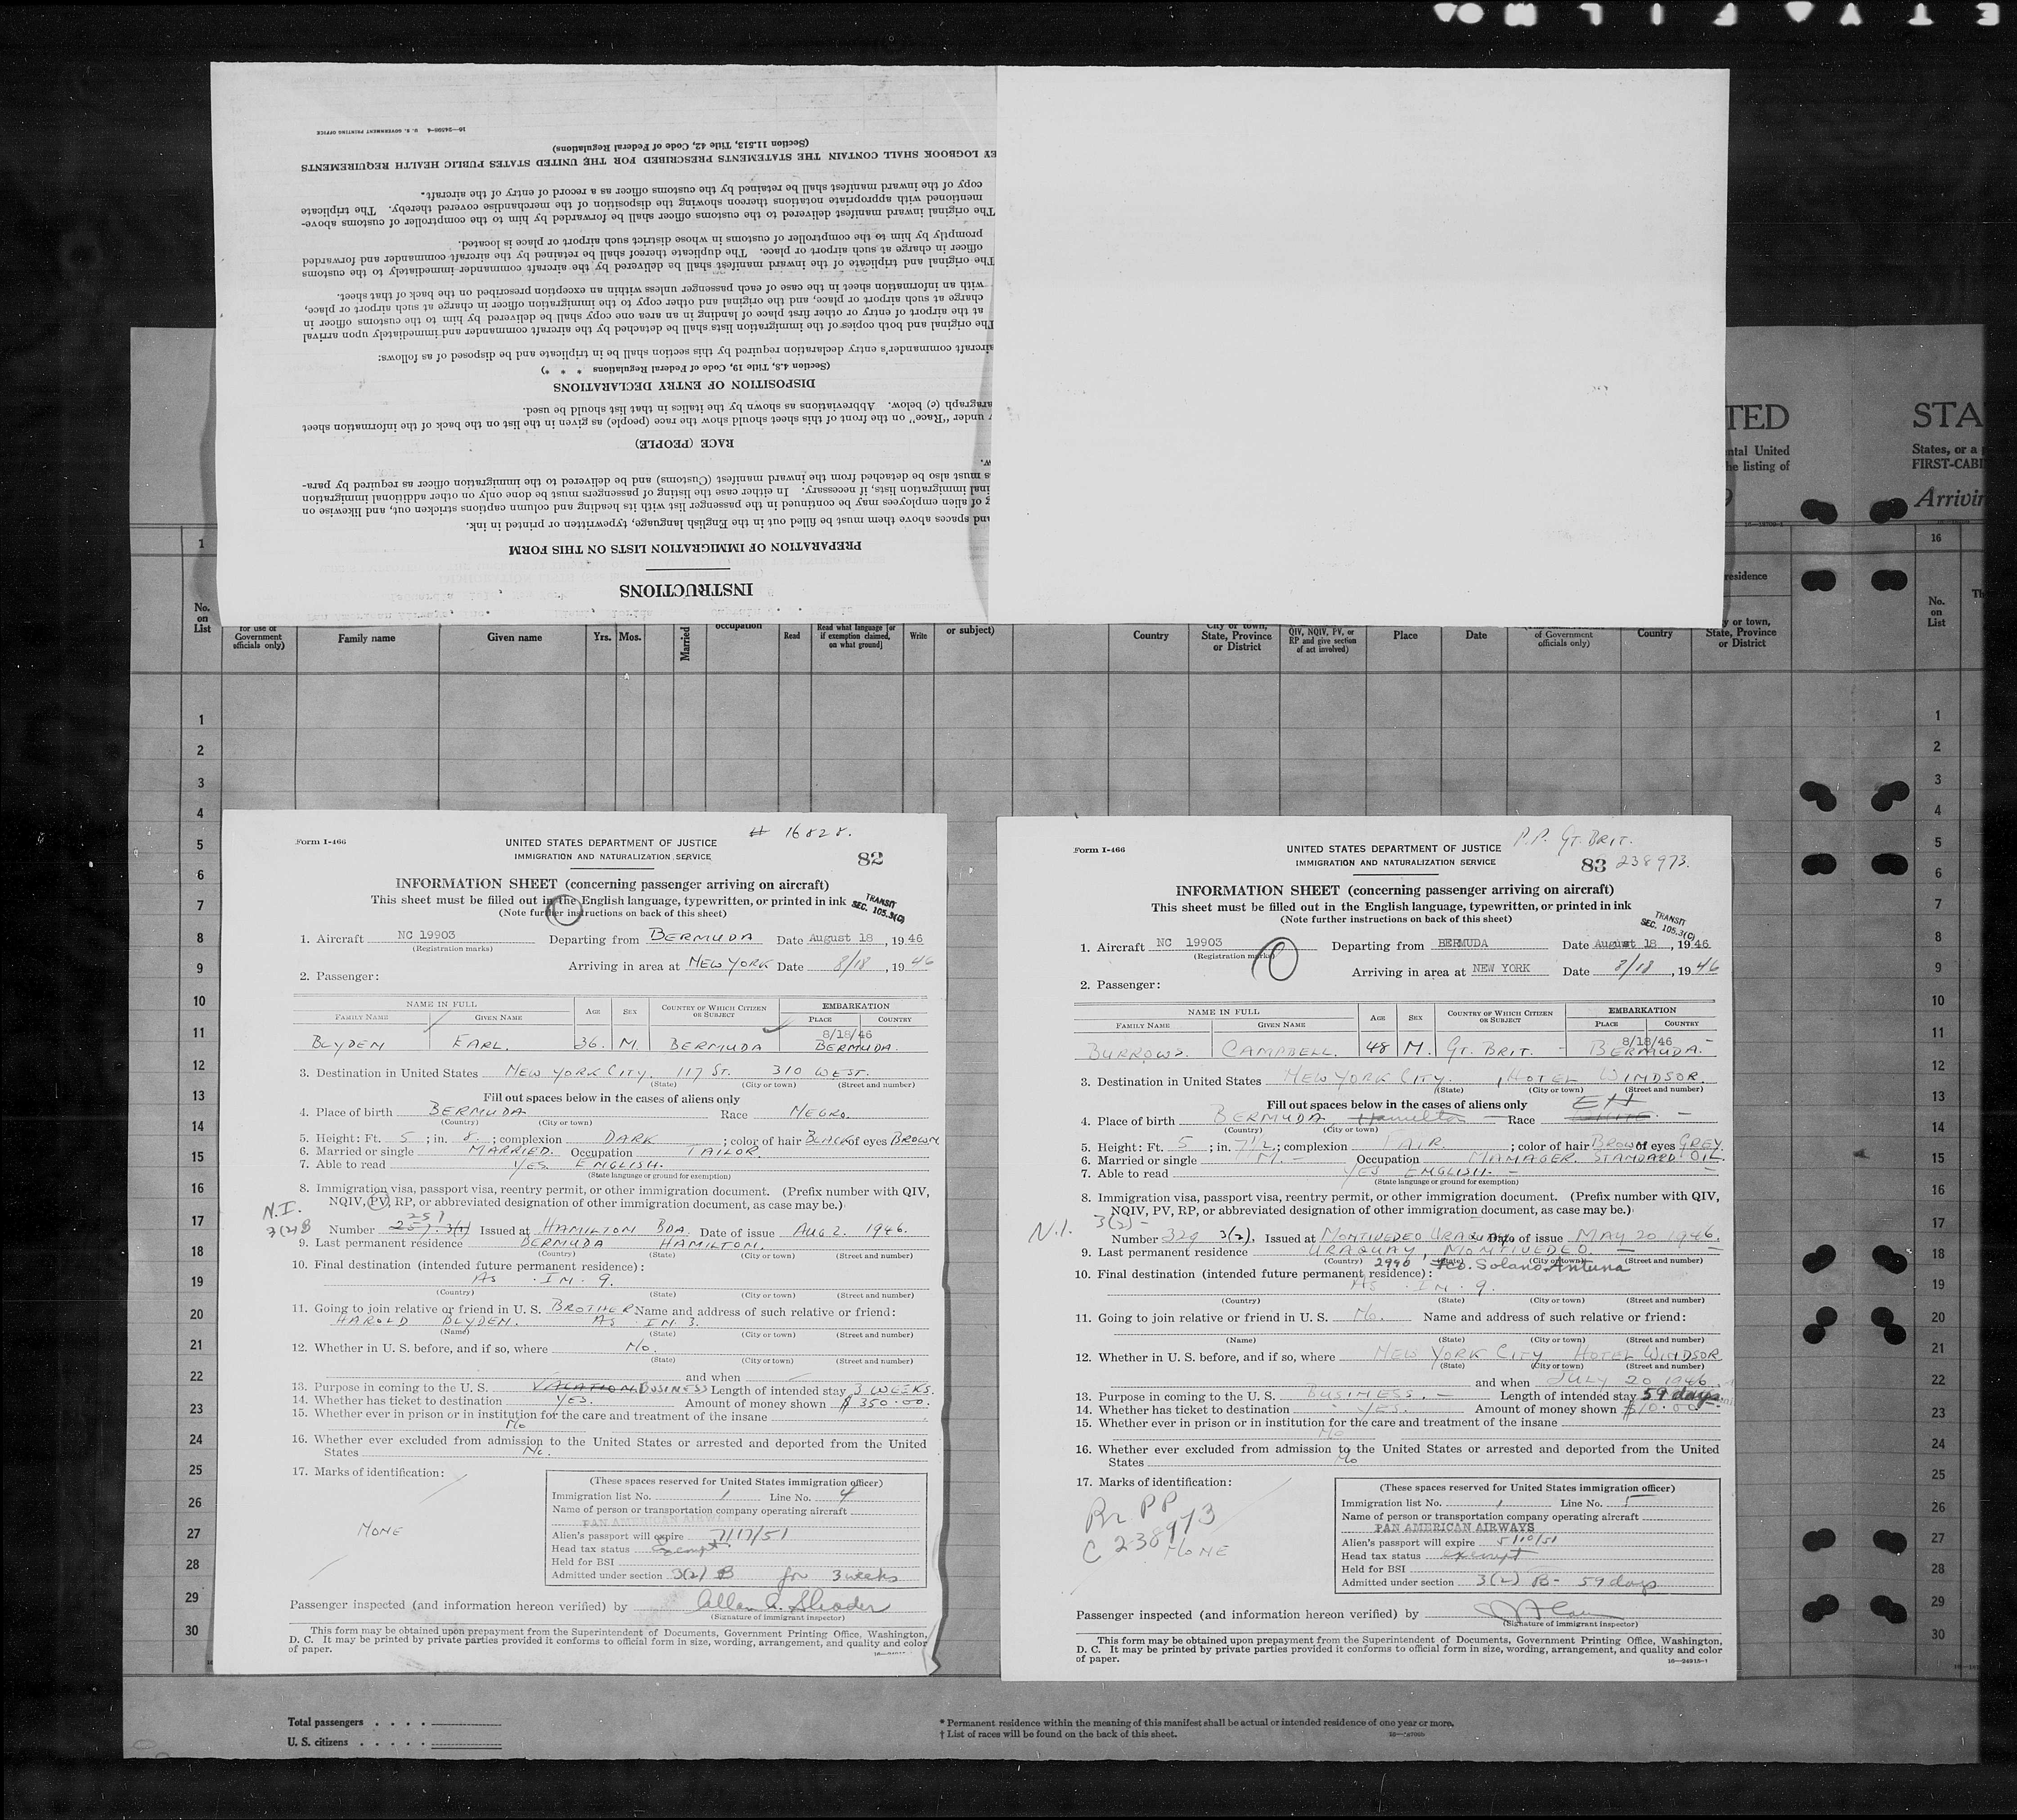 16—24598-4 U. S. GOVERNMENT PRINTING OFFICE
(Section 11.513, Title 42, Code of Federal Regulations)
EY LOGBOOK SHALL CONTAIN THE STATEMENTS PRESCRIBED FOR THE UNITED STATES PUBLIC HEALTH REQUIREMENTS
copy of the inward manifest shall be retained by the customs officer as a record of entry of the aircraft.
mentioned with appropriate notations thereon showing the disposition of the merchandise covered thereby. The triplicate
The original inward manifest delivered to the customs officer shall be forwarded by him to the comptroller of customs above-
promptly by him to the comptroller of customs in whose district such airport or place is located.
officer in charge at such airport or place. The duplicate thereof shall be retained by the aircraft commander and forwarded
The original and triplicate of the inward manifest shall be delivered by the aircraft commander immediately to the customs
with an information sheet in the case of each passenger unless within an exception prescribed on the back of that sheet.
charge at such airport or place, and the original and other copy to the immigration officer in charge at such airport or place,
at the airport of entry or other first place of landing in an area one copy shall be delivered by him to the customs officer in
The original and both copies of the immigration lists shall be detached by the aircraft commander and immediately upon arrival
aircraft commander's entry declaration required by this section shall be in triplicate and be disposed of as follows:
(Section 4.8, Title 19, Code of Federal Regulations * * *)
DISPOSITION OF ENTRY DECLARATIONS
aragraph (c) below. Abbreviations as shown by the italics in that list should be used.
y under "Race" on the front of this sheet should show the race (people) as given in the list on the back of the information sheet
RACE (PEOPLE)
w.
s must also be detached from the inward manifest (Customs) and be delivered to the immigration officer as required by para-
inal immigration lists, if necessary. In either case the listing of passengers must be done only on other additional immigration
g of alien employees may be continued in the passenger list with its heading and column captions stricken out, and likewise on
and spaces above them must be filled out in the English language, typewritten or printed in ink.
PREPARATION OF IMMIGRATION LISTS ON THIS FORM
INSTRUCTIONS
TED STA
ntal United States, or a
he listing of FIRST-CABI
Arrivin
1 16
residence
No. on List
for use of Government officials only)
Family name Given name Yrs. Mos. Married occupation Read Read what language [or if exemption claimed, on what ground] Write or subject)
Country City or town, State, Province or District QIV, NQIV, PV, or RP and give section of act involved) Place Date of Government officials only) Country y or town, State, Province or District
No. on List
1
2
3
4
5
6
7
8
9
10
11
12
13
14
15
16
17
18
19
20
21
22
23
24
25
26
27
28
29
30
Form I-466
UNITED STATES DEPARTMENT OF JUSTICE
16828.
IMMIGRATION AND NATURALIZATION SERVICE
82
INFORMATION SHEET (concerning passenger arriving on aircraft)
This sheet must be filled out in the English language, typewritten, or printed in ink
(Note further instructions on back of this sheet)
TRANSIT
SEC. 105.3(C)
1. Aircraft NC 19903 Departing from BERMUDA Date August 18, 1946
(Registration marks)
Arriving in area at NEW YORK Date 8/18, 1946
2. Passenger:
NAME IN FULL AGE SEX COUNTRY OF WHICH CITIZEN OR SUBJECT EMBARKATION
FAMILY NAME GIVEN NAME PLACE COUNTRY
8/18/46
BLYDEN EARL. 36. M. BERMUDA BERMUDA.
3. Destination in United States NEW YORK CITY. 117 ST. 310 WEST.
(State) (City or town) (Street and number)
Fill out spaces below in the cases of aliens only
4. Place of birth BERMUDA Race NEGRO
(Country) (City or town)
5. Height: Ft. 5; in. 8.; complexion DARK; color of hair BLACK of eyes BROWN
6. Married or single MARRIED. Occupation TAILOR.
7. Able to read YES ENGLISH.
(State language or ground for exemption)
8. Immigration visa, passport visa, reentry permit, or other immigration document. (Prefix number with QIV,
NQIV, PV, RP, or abbreviated designation of other immigration document, as case may be.)
N.I.
3(2)B
251
Number 257. 3(1) Issued at HAMILTON BDA. Date of issue AUG 2. 1946.
9. Last permanent residence BERMUDA HAMILTON.
(Country) (State) (City or town) (Street and number)
10. Final destination (intended future permanent residence):
AS IN 9.
(Country) (State) (City or town) (Street and number)
11. Going to join relative or friend in U. S. BROTHER Name and address of such relative or friend:
HAROLD BLYDEN. AS IN 3.
(Name) (State) (City or town) (Street and number)
12. Whether in U. S. before, and if so, where NO.
(State) (City or town) (Street and number)
and when
13. Purpose in coming to the U. S. VACATION BUSINESS Length of intended stay 3 WEEKS.
14. Whether has ticket to destination YES. Amount of money shown $350.00.
15. Whether ever in prison or in institution for the care and treatment of the insane
No
16. Whether ever excluded from admission to the United States or arrested and deported from the United
States No.
17. Marks of identification:
NONE
(These spaces reserved for United States immigration officer)
Immigration list No. 1 Line No. 4
Name of person or transportation company operating aircraft
PAN AMERICAN AIRWAYS
Alien's passport will expire 7/17/51
Head tax status Exempt
Held for BSI
Admitted under section 3(2) B for 3 weeks
Passenger inspected (and information hereon verified) by
(Signature of immigrant inspector)
This form may be obtained upon prepayment from the Superintendent of Documents, Government Printing Office, Washington,
D. C. It may be printed by private parties provided it conforms to official form in size, wording, arrangement, and quality and color
of paper.
Form I-466
UNITED STATES DEPARTMENT OF JUSTICE
P.P. GT. BRIT.
IMMIGRATION AND NATURALIZATION SERVICE
83 238973.
INFORMATION SHEET (concerning passenger arriving on aircraft)
This sheet must be filled out in the English language, typewritten, or printed in ink
(Note further instructions on back of this sheet)
TRANSIT
SEC. 105.3(C)
1. Aircraft NC 19903 Departing from BERMUDA Date August 18, 1946
(Registration marks)
Arriving in area at NEW YORK Date 8/18, 1946
2. Passenger:
NAME IN FULL AGE SEX COUNTRY OF WHICH CITIZEN OR SUBJECT EMBARKATION
FAMILY NAME GIVEN NAME PLACE COUNTRY
8/18/46
BURROWS. CAMPBELL. 48 M. GT. BRIT. BERMUDA.
3. Destination in United States NEW YORK CITY, HOTEL WINDSOR.
(State) (City or town) (Street and number)
Fill out spaces below in the cases of aliens only
4. Place of birth BERMUDA Hamilton Race WHITE.
(Country) (City or town)
5. Height: Ft. 5; in. 7 1/2; complexion FAIR.; color of hair BROWN of eyes GREY.
6. Married or single M. Occupation MANAGER. STANDARD OIL.
7. Able to read YES ENGLISH.
(State language or ground for exemption)
8. Immigration visa, passport visa, reentry permit, or other immigration document. (Prefix number with QIV,
NQIV, PV, RP, or abbreviated designation of other immigration document, as case may be.)
N.I. 3(2)
Number 329 3(2), Issued at MONTIVEDEO URAQUAY Date of issue MAY 20 1946.
9. Last permanent residence URAQUAY, MONTIVEDEO.
(Country) (State) (City or town) (Street and number)
2990 Fco. Solano Antuna
10. Final destination (intended future permanent residence):
AS IN 9.
(Country) (State) (City or town) (Street and number)
11. Going to join relative or friend in U. S. No. Name and address of such relative or friend:
(Name) (State) (City or town) (Street and number)
12. Whether in U. S. before, and if so, where NEW YORK CITY HOTEL WINDSOR
(State) (City or town) (Street and number)
and when JULY 20 1946
13. Purpose in coming to the U. S. BUSINESS. Length of intended stay 59 days
14. Whether has ticket to destination YES. Amount of money shown $10.00
15. Whether ever in prison or in institution for the care and treatment of the insane
No
16. Whether ever excluded from admission to the United States or arrested and deported from the United
States No
17. Marks of identification:
Br PP
C 238973
NONE
(These spaces reserved for United States immigration officer)
Immigration list No. 1 Line No. 5
Name of person or transportation company operating aircraft
PAN AMERICAN AIRWAYS
Alien's passport will expire 5/10/51
Head tax status exempt
Held for BSI
Admitted under section 3(2) B- 59 days
Passenger inspected (and information hereon verified) by
(Signature of immigrant inspector)
This form may be obtained upon prepayment from the Superintendent of Documents, Government Printing Office, Washington,
D. C. It may be printed by private parties provided it conforms to official form in size, wording, arrangement, and quality and color
of paper.
16—24915-1
1
2
3
4
5
6
7
8
9
10
11
12
13
14
15
16
17
18
19
20
21
22
23
24
25
26
27
28
29
30
Total passengers . . . .
U. S. citizens . . . . .
* Permanent residence within the meaning of this manifest shall be actual or intended residence of one year or more.
† List of races will be found on the back of this sheet.